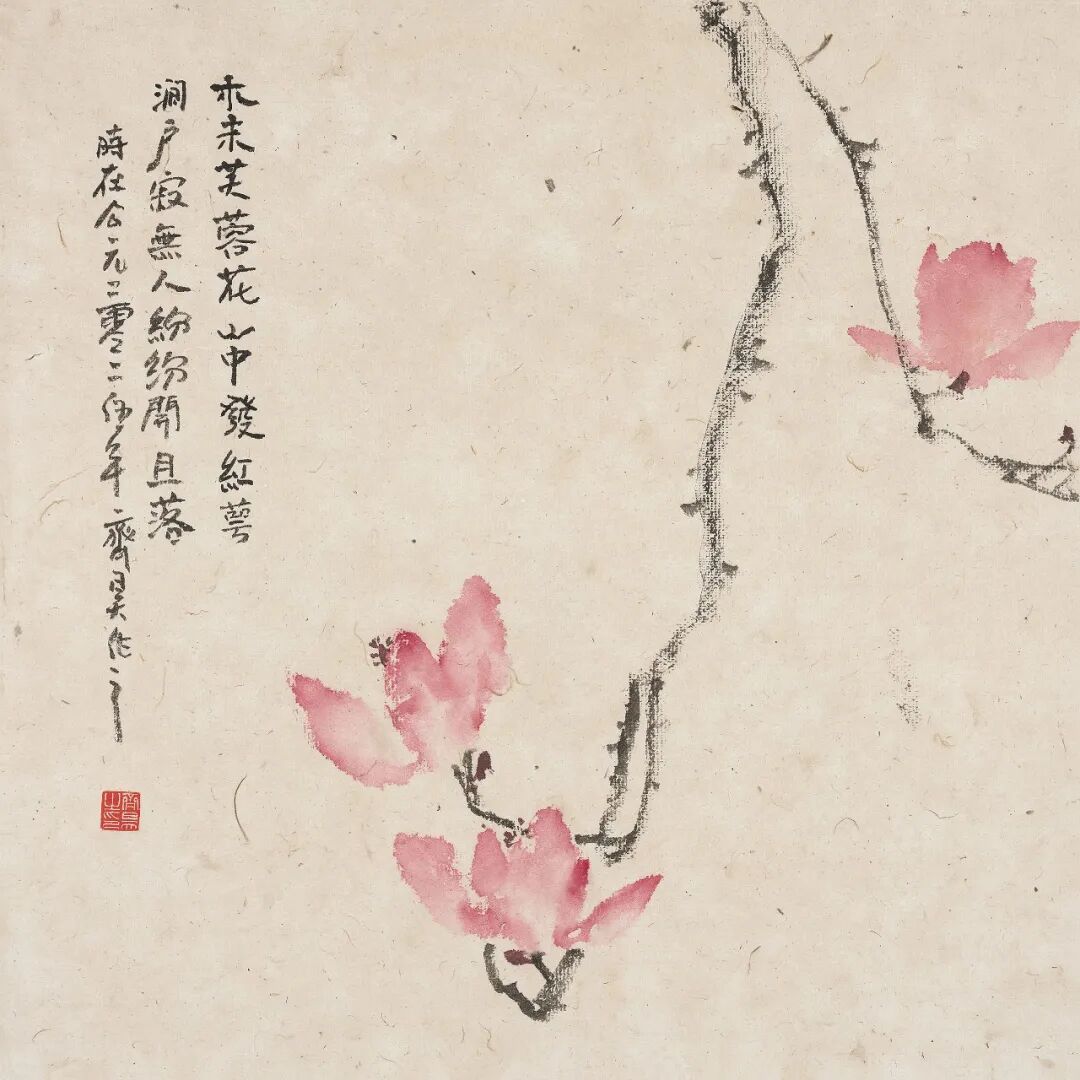 木末芙蓉花山中發紅萼
澗戶寂無人紛紛開且落
時在公元二零二伍年齊昊作之
齊昊之印